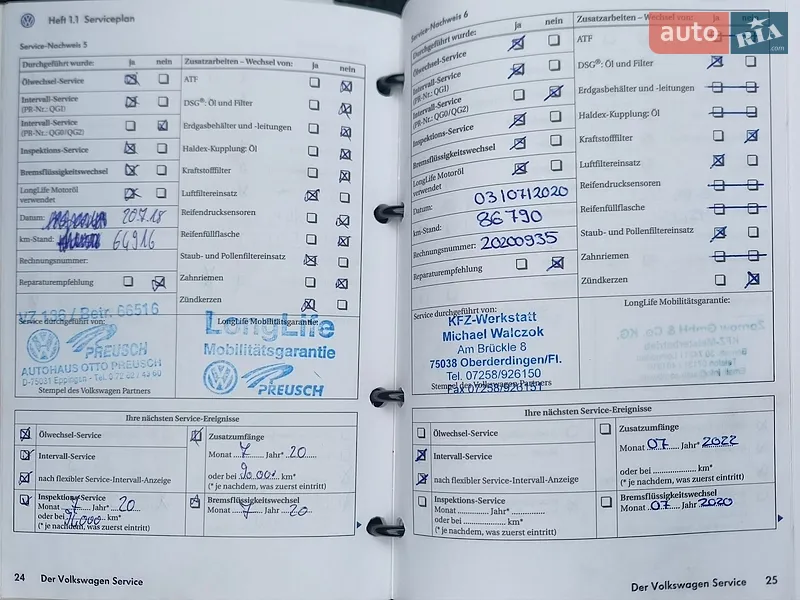 Heft 1.1 Serviceplan
Service-Nachweis 5
Durchgeführt wurde: ja nein
Ölwechsel-Service
Intervall-Service
(PR-Nr.: QG1)
Intervall-Service
(PR-Nr.: QG0/QG2)
Inspektions-Service
Bremsflüssigkeitswechsel
LongLife Motoröl
verwendet
Datum: 20.7.18
km-Stand: 64916
Rechnungsnummer:
Reparaturempfehlung
Zusatzarbeiten - Wechsel von: ja nein
ATF
DSG®: Öl und Filter
Erdgasbehälter und -leitungen
Haldex-Kupplung: Öl
Kraftstofffilter
Luftfiltereinsatz
Reifendrucksensoren
Reifenfüllflasche
Staub- und Pollenfiltereinsatz
Zahnriemen
Zündkerzen
VZ 136 / Betr. 66516
Service durchgeführt von:
PREUSCH
AUTOHAUS OTTO PREUSCH
D-75031 Eppingen - Tel.
Stempel des Volkswagen Partners
LongLife
LongLife Mobilitätsgarantie:
Mobilitätsgarantie
PREUSCH
Ihre nächsten Service-Ereignisse
Ölwechsel-Service
Intervall-Service
nach flexibler Service-Intervall-Anzeige
Inspektions-Service
Monat 7 Jahr* 20
oder bei km*
(* je nachdem, was zuerst eintritt)
Zusatzumfänge
Monat 7 Jahr* 20
oder bei 90.000 km*
(* je nachdem, was zuerst eintritt)
Bremsflüssigkeitswechsel
Monat 7 Jahr 20
24 Der Volkswagen Service
Service-Nachweis 6
Durchgeführt wurde: ja nein
Ölwechsel-Service
Intervall-Service
(PR-Nr.: QG1)
Intervall-Service
(PR-Nr.: QG0/QG2)
Inspektions-Service
Bremsflüssigkeitswechsel
LongLife Motoröl
verwendet
Datum: 03/07/2020
km-Stand: 86790
Rechnungsnummer: 20200935
Reparaturempfehlung
Zusatzarbeiten - Wechsel von: ja nein
ATF
DSG®: Öl und Filter
Erdgasbehälter und -leitungen
Haldex-Kupplung: Öl
Kraftstofffilter
Luftfiltereinsatz
Reifendrucksensoren
Reifenfüllflasche
Staub- und Pollenfiltereinsatz
Zahnriemen
Zündkerzen
Service durchgeführt von:
KFZ-Werkstatt
Michael Walczok
Am Brückle 8
75038 Oberderdingen/Fl.
Tel. 07258/926150
Fax 07258/926151
Stempel des Volkswagen Partners
LongLife Mobilitätsgarantie:
Ihre nächsten Service-Ereignisse
Ölwechsel-Service
Intervall-Service
nach flexibler Service-Intervall-Anzeige
Inspektions-Service
Monat Jahr*
oder bei km*
(* je nachdem, was zuerst eintritt)
Zusatzumfänge
Monat 07 Jahr* 2022
oder bei km*
(* je nachdem, was zuerst eintritt)
Bremsflüssigkeitswechsel
Monat 07 Jahr 2020
Der Volkswagen Service 25
auto RIA
.com